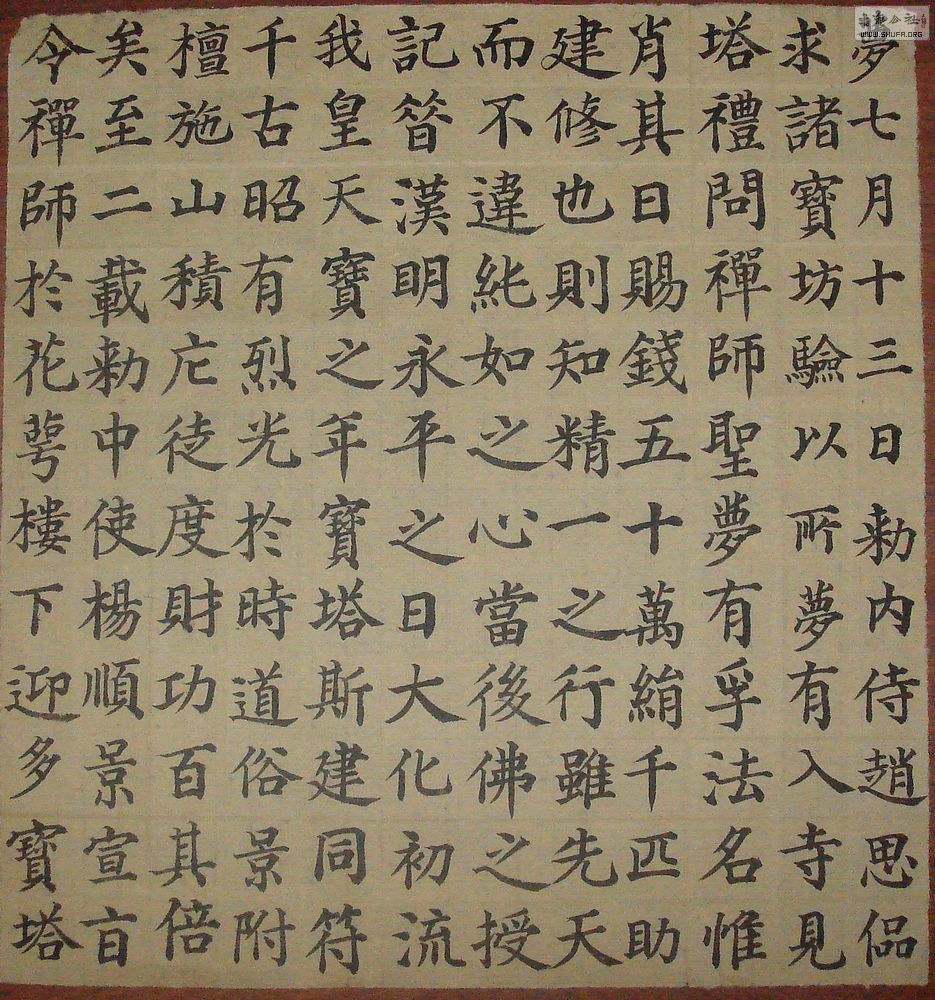 夢七月十三日勅内侍趙思侃
求諸寶坊驗以所夢有入寺見
塔禮問禪師聖夢有孚法名惟
肖其日賜錢五十萬絹千匹助
建修也則知精一之行雖先天
而不違純如之心當後佛之授
記昝漢明永平之日大化初流
我皇天寶之年寶塔斯建同符
千古昭有烈光於時道俗景附
檀施山積庀徒度財功百其倍
矣至二載勅中使楊順景宣旨
令禪師於花萼樓下迎多寶塔
WWW.SHUFA.ORG